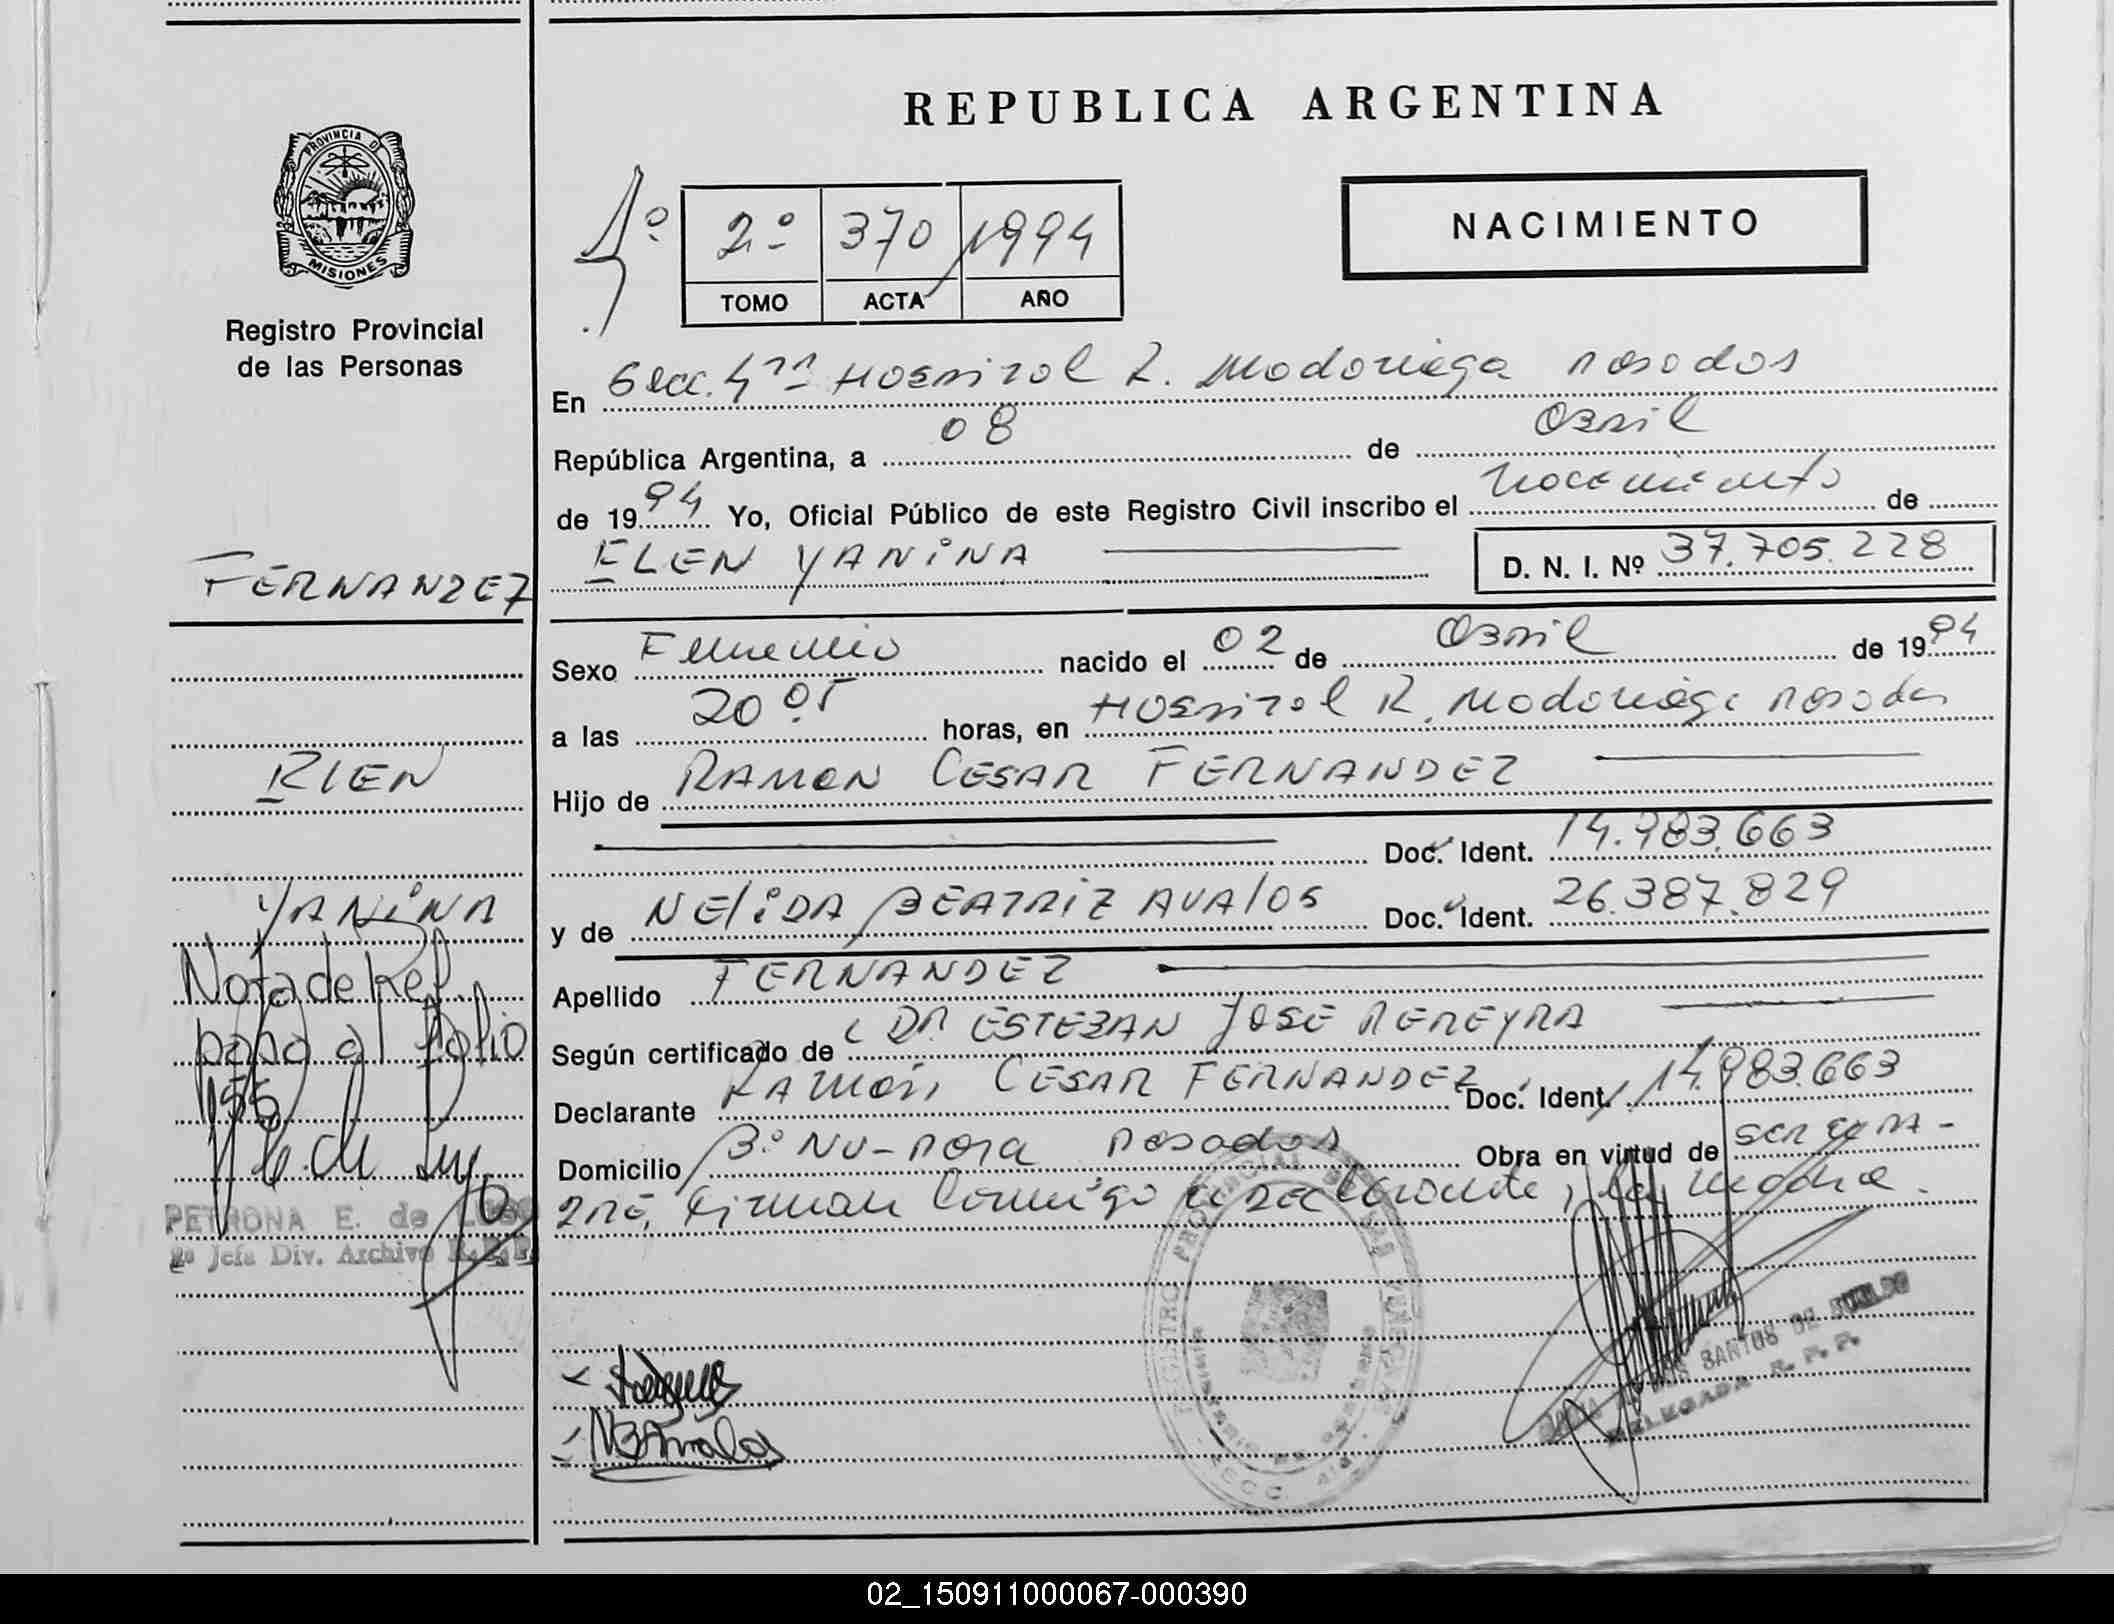 REPUBLICA ARGENTINA
PROVINCIA D
MISIONES
Registro Provincial
de las Personas
2º 370 1994
TOMO ACTA AÑO
NACIMIENTO
En Secc. 4ta Hospital R. Madariaga Posadas
República Argentina, a 08 de Abril
de 1994 Yo, Oficial Público de este Registro Civil inscribo el nacimiento de
ELEN YANINA D. N. I. Nº 37.705.228
Sexo Femenino nacido el 02 de Abril de 1994
a las 20 05 horas, en Hospital R. Madariaga Posadas
Hijo de RAMON CESAR FERNANDEZ
Doc. Ident. 14.983.663
y de NELIDA BEATRIZ AVALOS Doc. Ident. 26.387.829
Apellido FERNANDEZ
Según certificado de DR. ESTEBAN JOSE PEREYRA
Declarante RAMON CESAR FERNANDEZ Doc. Ident. 14.983.663
Domicilio Bº Ñu-Pora Posadas Obra en virtud de ser el PA-
DRE, Firman conmigo el declarante, la madre.
FERNANDEZ
ELEN
YANINA
Nota de Ref.
pasa al folio
155
PETRONA E. de
Jefa Div. Archivo
NBAvalos
REGISTRO PROVINCIAL DE LAS PERSONAS
SANTOS DE
DELEGADA R. P. P.
02_150911000067-000390